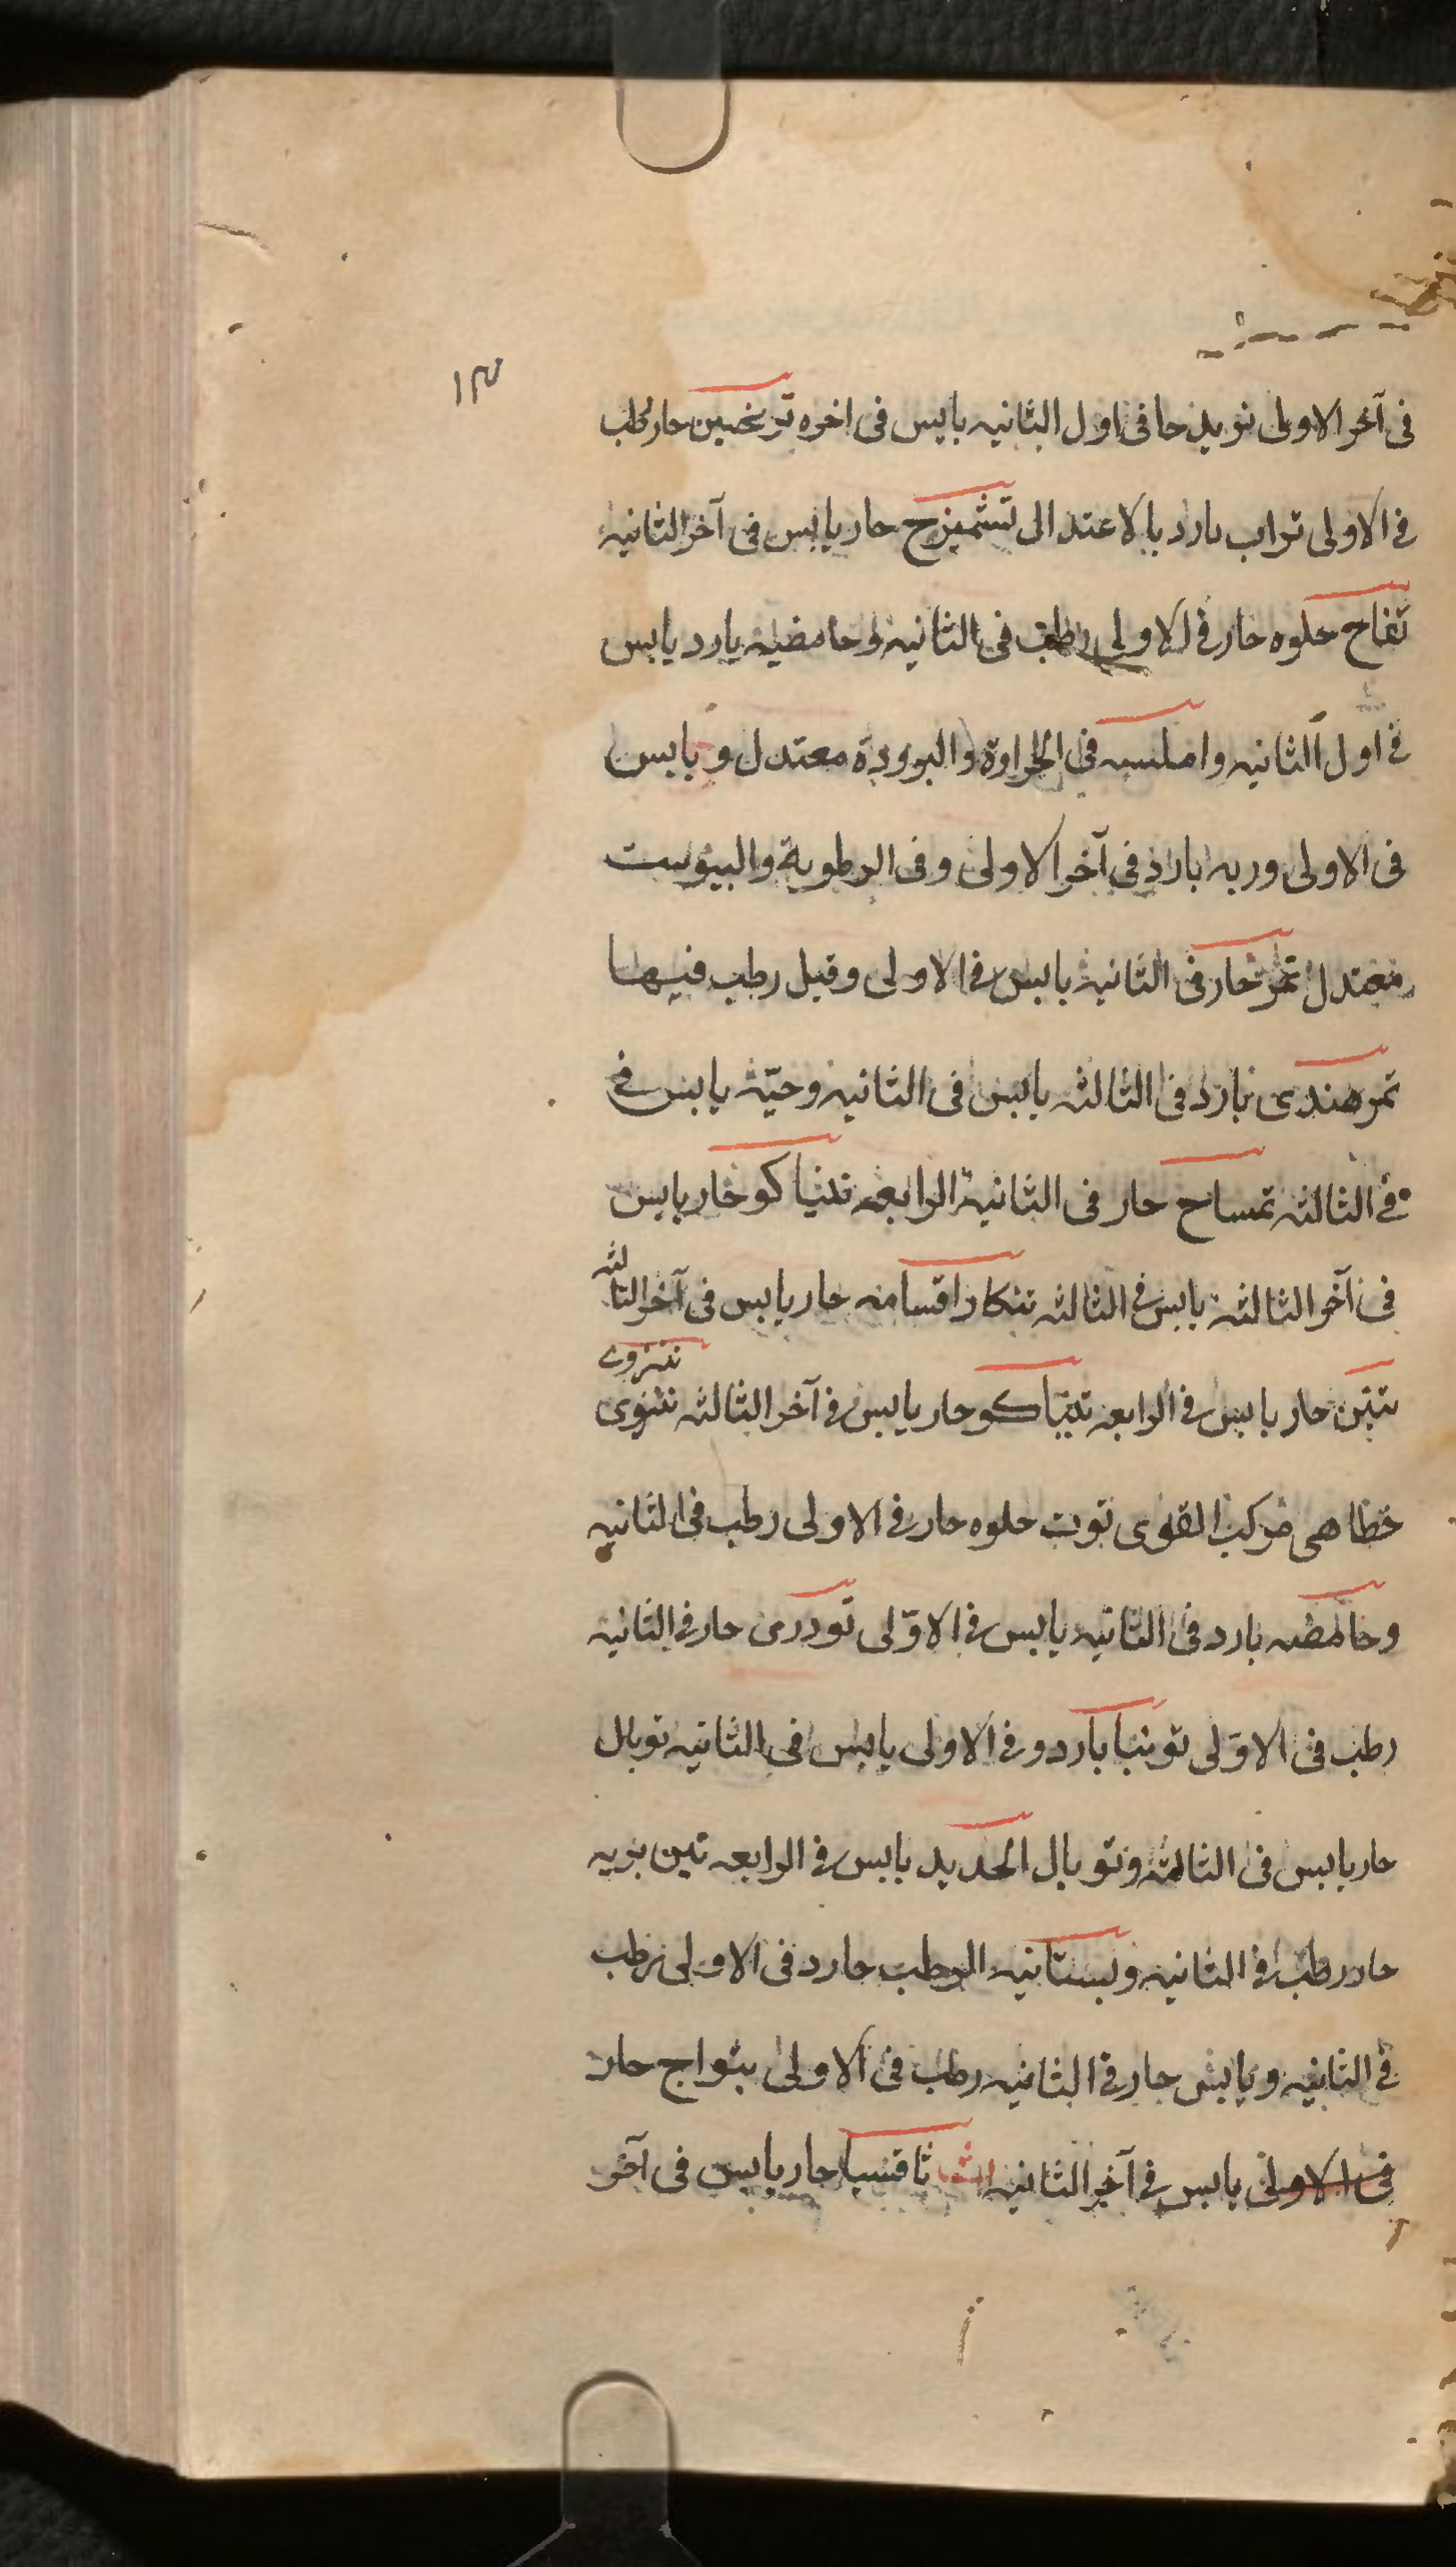 ١٣
فى آخر الاولى تربد حا فى اول الثانيه يابس فى اخره ترنجبين حار رطب
فى الاولى تراب بارد بالاعتدالى تشميزج حار يابس فى آخر الثانيه
تفاح حلوه حار فى الاولى رطب فى الثانيه وحامضيه بارد يابس
فى اول الثانيه واملسه فى الحراوة والبرودة معتدل و يابس
فى الاولى وربه بارد فى آخر الاولى وفى الرطوبة واليبوست
معتدل تمر حار فى الثانية يابس فى الاولى وقيل رطب فيها
تمر هندى بارد فى الثالثه يابس فى الثانيه وحبّه يابس فى
فى الثالثه تمساح حار فى الثانية الرابعه تنباكو حار يابس
فى آخر الثالثه يابس فى الثالثه تنكار اقسامه حار يابس فى آخر الثالثه
تنين حار يابس فى الرابعه تنباكو حار يابس فى آخر الثالثه تنزوى
تنزوے
خطاهى مركب القوى توت حلوه حار فى الاولى رطب فى الثانيه
وحامضه بارد فى الثانيه يابس فى الاوّلى تودرى حار فى الثانيه
رطب فى الاوّلى توتيا بارد و فى الاولى يابس فى الثانيه توبال
حار يابس فى الثالثه وتوبال الحديد يابس فى الرابعه تين بريه
حار رطب فى الثانيه وبستانيه الرطب حارد فى الاولى رطب
فى الثانيه ويابس حار فى الثانيه رطب فى الاولى بثواج حار
فى الاولى يابس فى آخر الثانيه الثا ثاقسيا حار يابس فى آخر